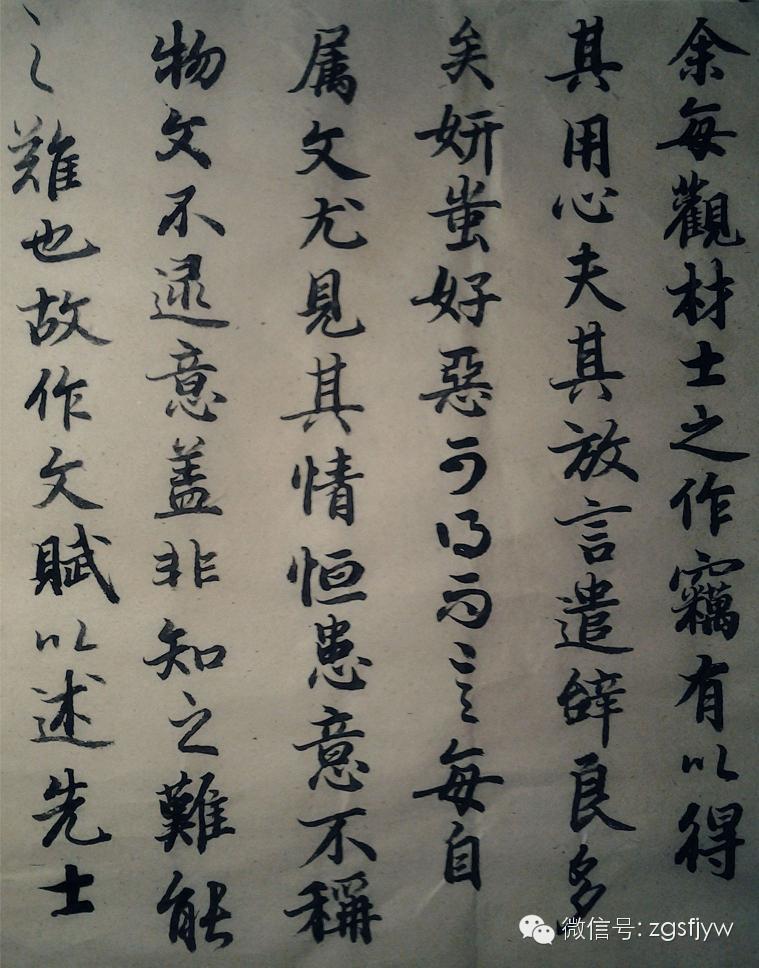 余每觀材士之作竊有以得
其用心夫其放言遣辤良多
矣妍蚩好惡可得而言每自
属文尤見其情恒患意不稱
物文不逮意盖非知之難能
之難也故作文賦以述先士
微信号: zgsfjyw